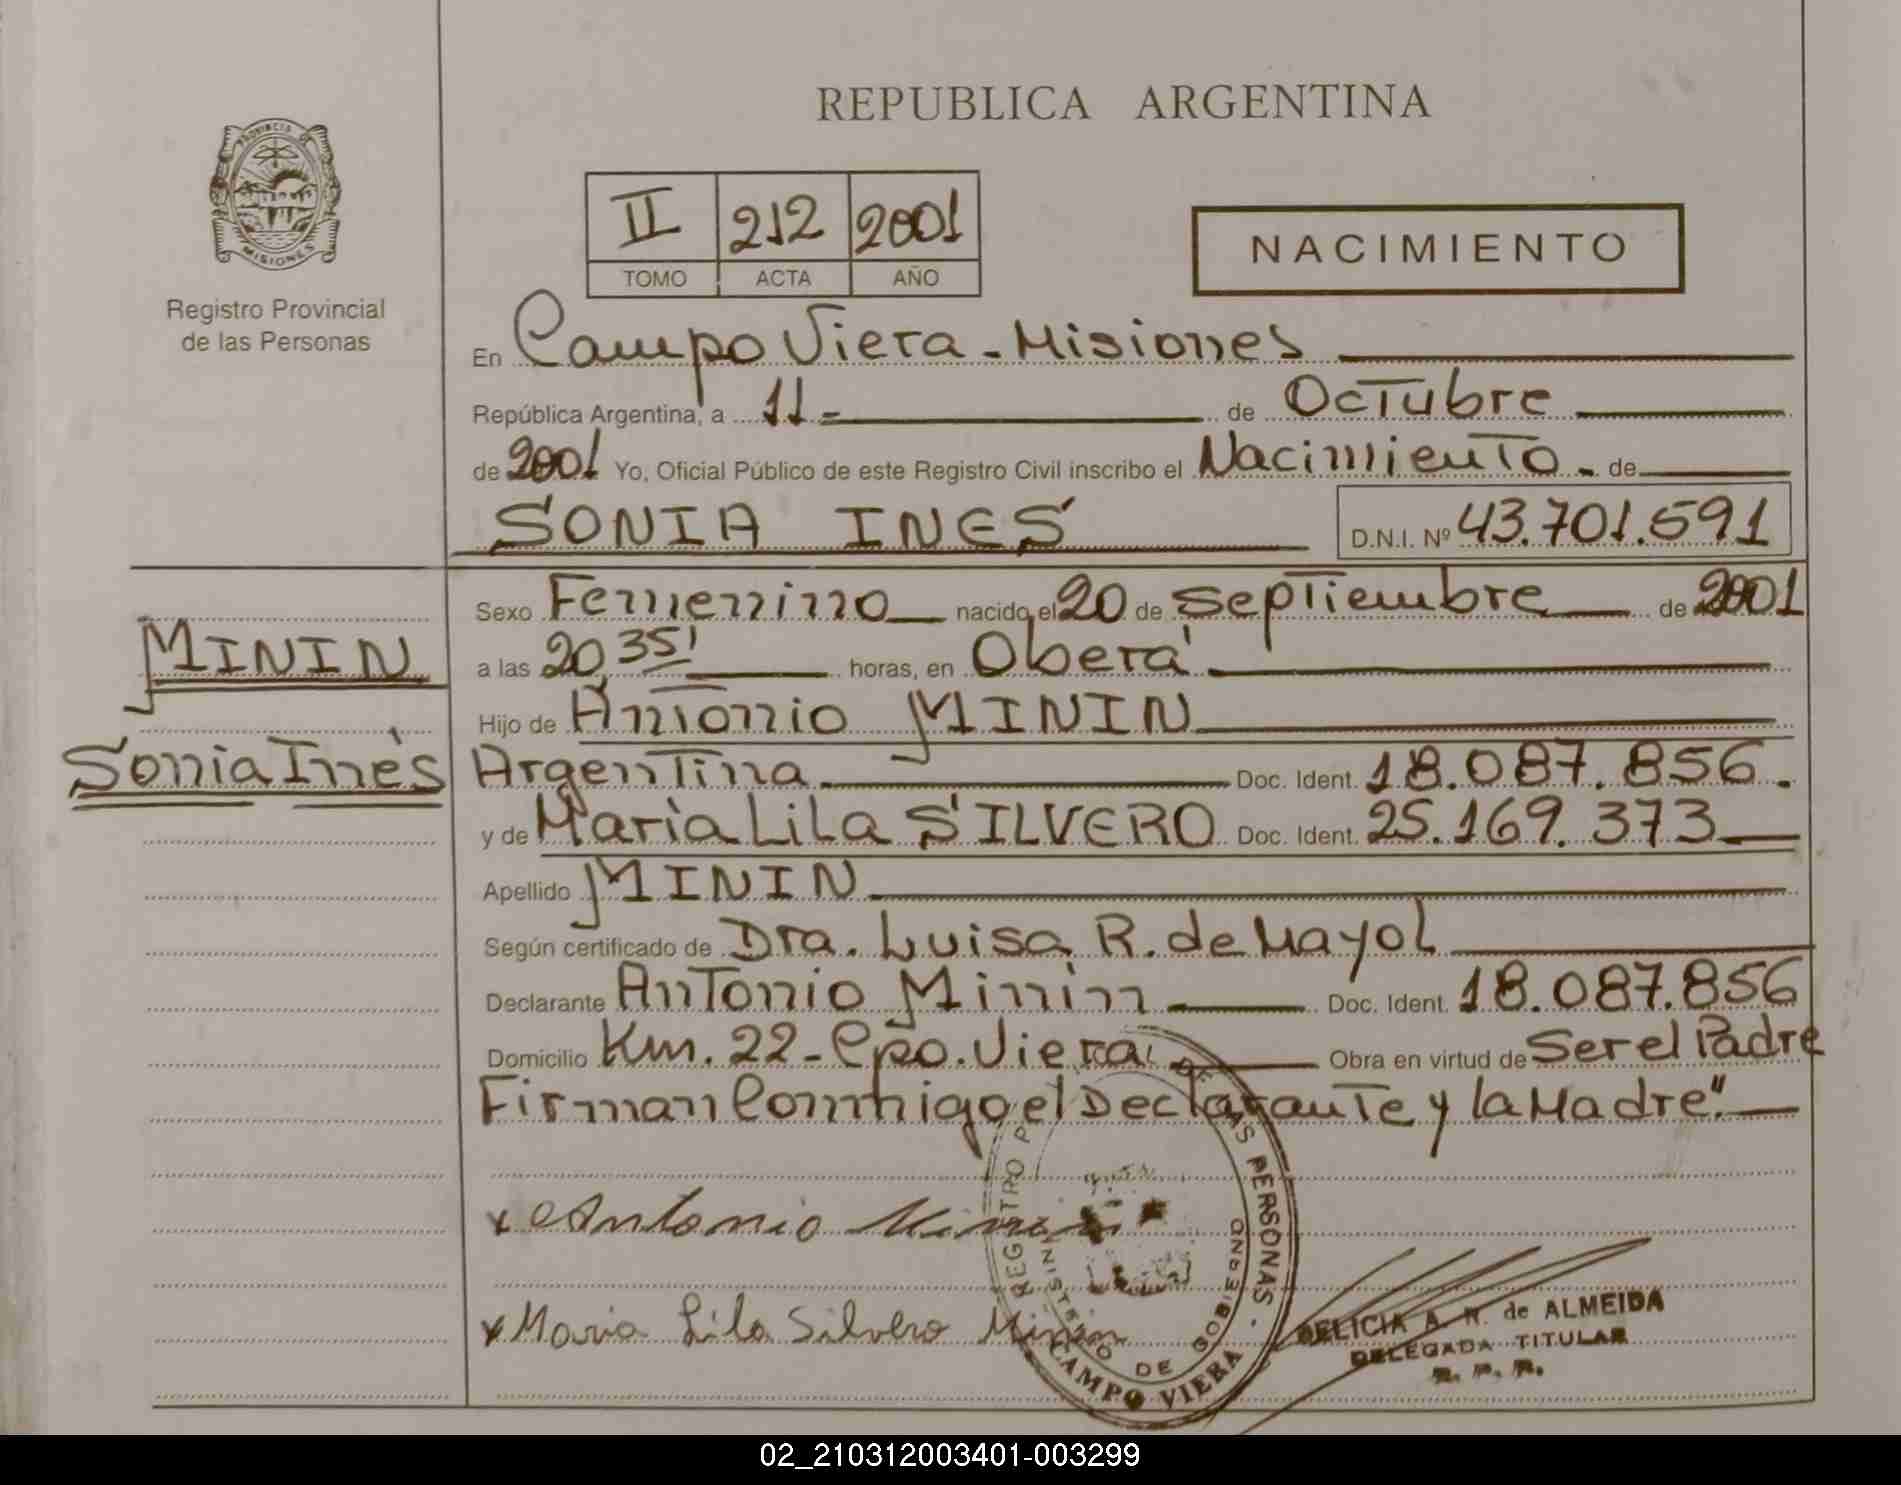 REPUBLICA ARGENTINA
PROVINCIA DE
MISIONES
Registro Provincial
de las Personas
II 212 2001
TOMO ACTA AÑO
NACIMIENTO
En Campo Viera - Misiones
República Argentina, a 11 - de Octubre
de 2001 Yo, Oficial Público de este Registro Civil inscribo el Nacimiento - de
SONIA INES
D.N.I. Nº 43.701.591
MININ
Sonia Inés
Sexo Femenino nacido el 20 de Septiembre de 2001
a las 20,35' horas, en Oberá
Hijo de Antonio MININ
Argentina Doc. Ident. 18.087.856.
y de María Lila SILVERO Doc. Ident. 25.169.373
Apellido MININ
Según certificado de Dra. Luisa R. de Mayol
Declarante Antonio Minin Doc. Ident. 18.087.856
Domicilio Km. 22 - Cpo. Viera Obra en virtud de Ser el Padre
Firman Conmigo el Declarante y la Madre"
x Antonio Minin
x Maria Lila Silvero Minin
REGISTRO P DE LAS PERSONAS
MINISTERIO DE GOBIERNO
CAMPO VIERA
DELICIA A. N. de ALMEIDA
DELEGADA TITULAR
R. P. P.
02_210312003401-003299